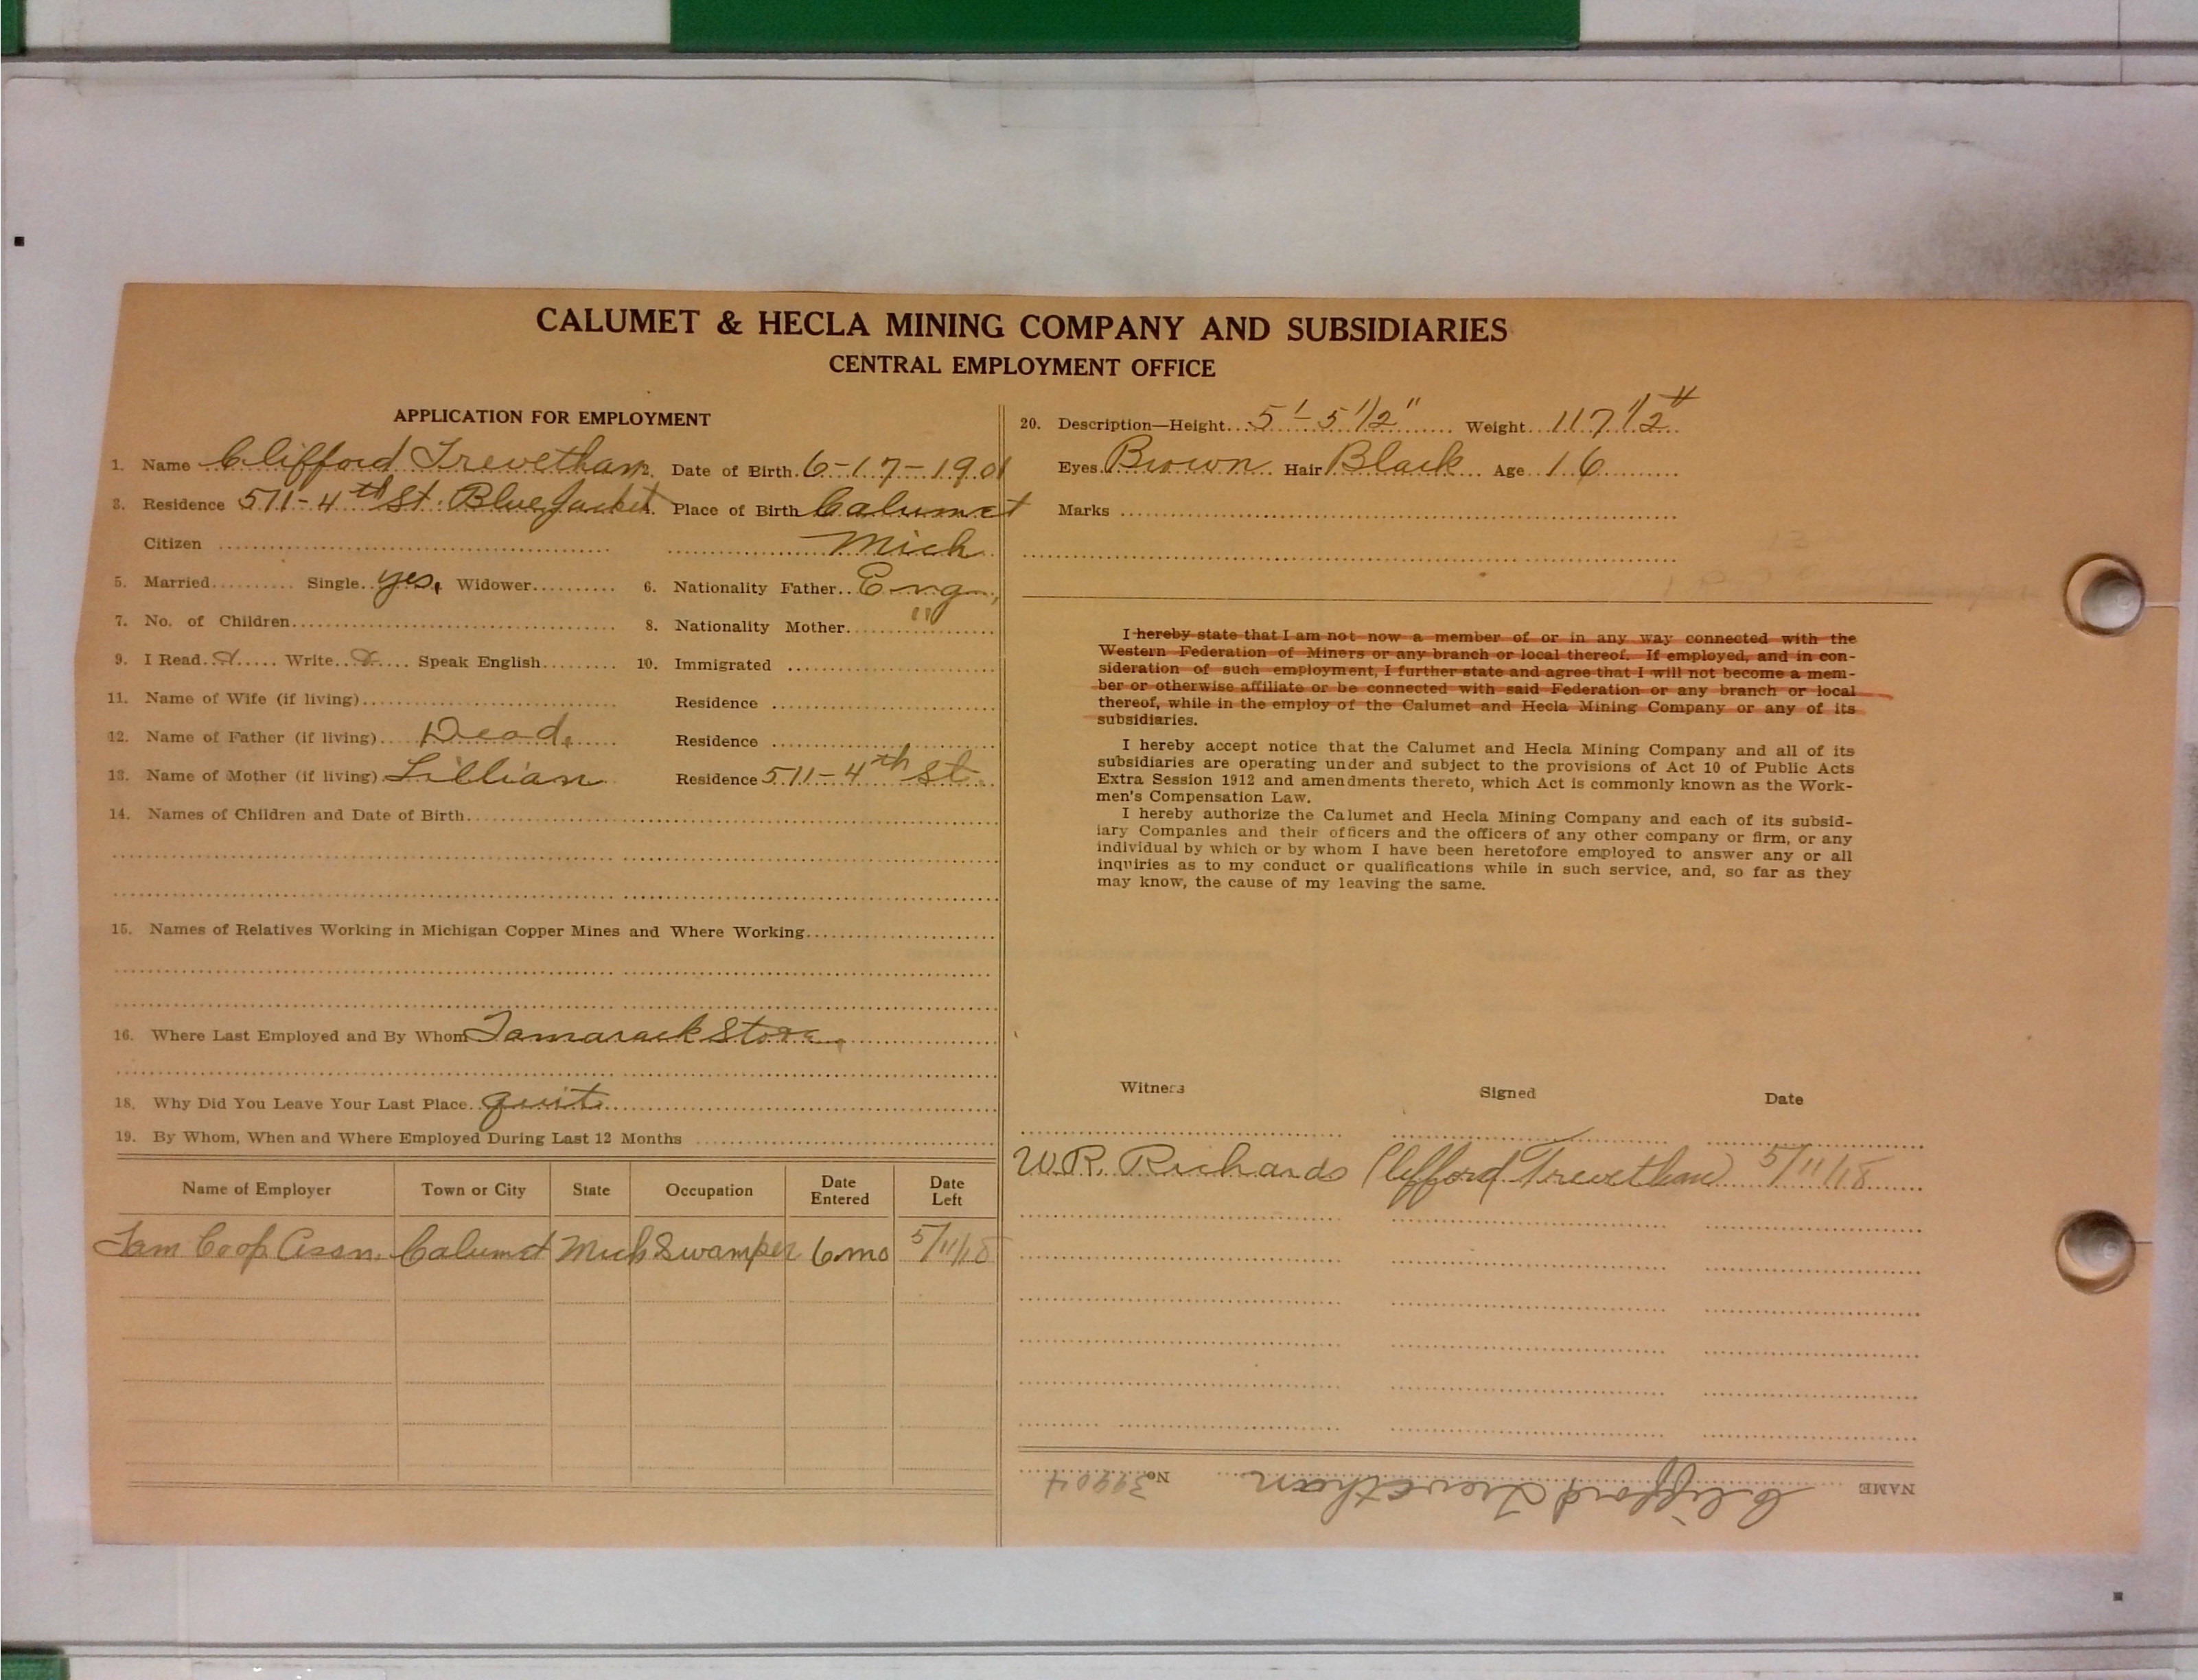 CALUMET & HECLA MINING COMPANY AND SUBSIDIARIES
CENTRAL EMPLOYMENT OFFICE
APPLICATION FOR EMPLOYMENT
1. Name Clifford Trevethan. Date of Birth 6-17-1901
3. Residence 511-4th St. Blue Jacket. Place of Birth Calumet
Citizen Mich
5. Married Single yes, Widower 6. Nationality Father Eng.
7. No. of Children 8. Nationality Mother "
9. I Read Write Speak English 10. Immigrated
11. Name of Wife (if living) Residence
12. Name of Father (if living) Dead. Residence
13. Name of Mother (if living) Lillian Residence 511-4th St.
14. Names of Children and Date of Birth
15. Names of Relatives Working in Michigan Copper Mines and Where Working
16. Where Last Employed and By Whom Tamarack Store
18. Why Did You Leave Your Last Place quit
19. By Whom, When and Where Employed During Last 12 Months
Name of Employer Town or City State Occupation Date Entered Date Left
Tam Coop Assn. Calumet Mich Swamper 6 mo 5/11/18
20. Description—Height 5'-5 1/2" Weight 117 1/2 #
Eyes Brown Hair Black Age 16
Marks
I hereby state that I am not now a member of or in any way connected with the
Western Federation of Miners or any branch or local thereof. If employed, and in con-
sideration of such employment, I further state and agree that I will not become a mem-
ber or otherwise affiliate or be connected with said Federation or any branch or local
thereof, while in the employ of the Calumet and Hecla Mining Company or any of its
subsidiaries.
I hereby accept notice that the Calumet and Hecla Mining Company and all of its
subsidiaries are operating under and subject to the provisions of Act 10 of Public Acts
Extra Session 1912 and amendments thereto, which Act is commonly known as the Work-
men's Compensation Law.
I hereby authorize the Calumet and Hecla Mining Company and each of its subsid-
iary Companies and their officers and the officers of any other company or firm, or any
individual by which or by whom I have been heretofore employed to answer any or all
inquiries as to my conduct or qualifications while in such service, and, so far as they
may know, the cause of my leaving the same.
Witness Signed Date
W.R. Richards Clifford Trevethan 5/11/18
NAME Clifford Trevethan No. 39904